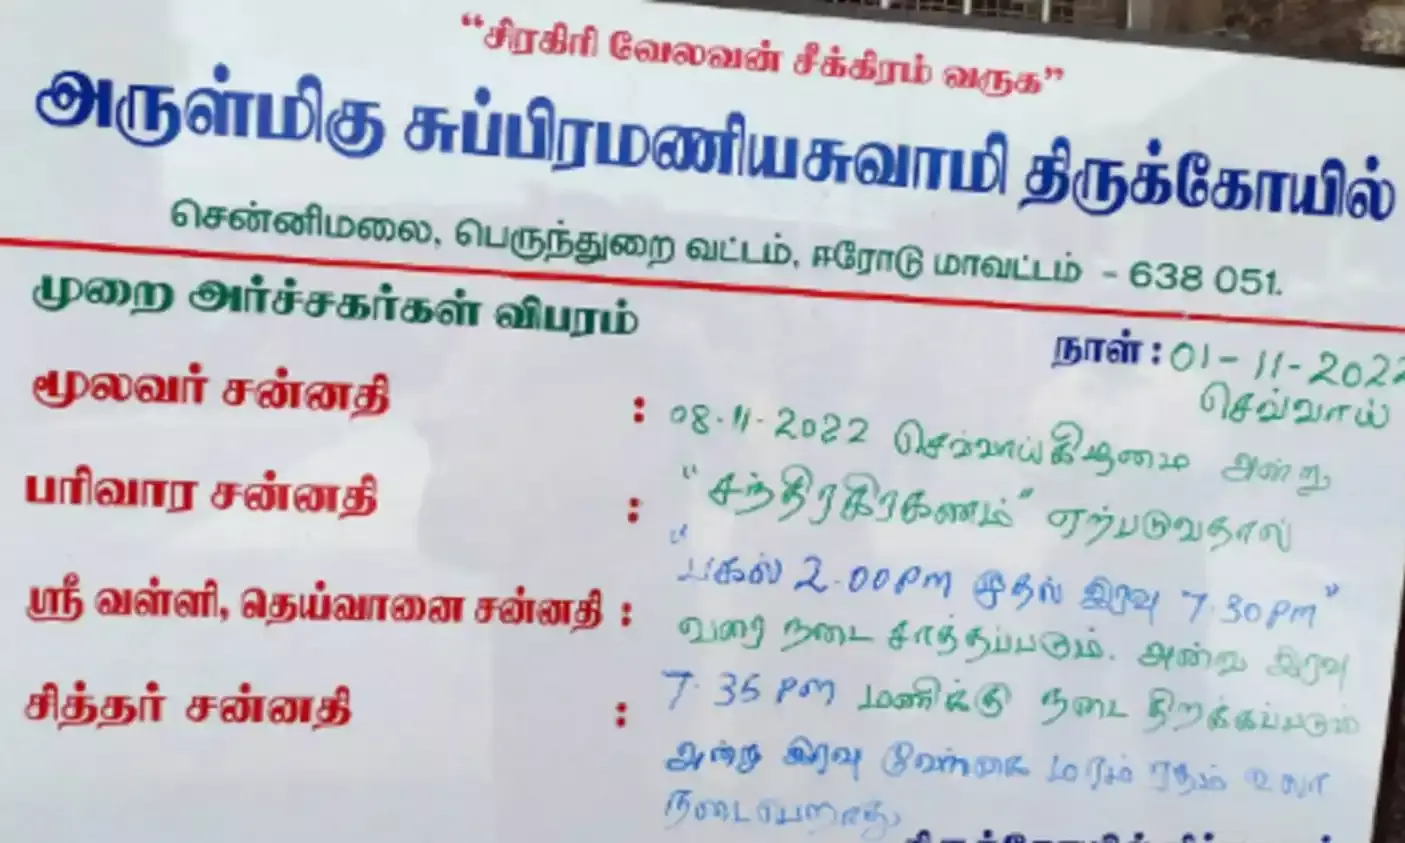 “சிரகிரி வேலவன் சீக்கிரம் வருக”
அருள்மிகு சுப்பிரமணியசுவாமி திருக்கோயில்
சென்னிமலை, பெருந்துறை வட்டம், ஈரோடு மாவட்டம் - 638 051.
முறை அர்ச்சகர்கள் விபரம்
நாள் : 01-11-2022
செவ்வாய்
மூலவர் சன்னதி :
பரிவார சன்னதி :
ஸ்ரீ வள்ளி, தெய்வானை சன்னதி :
சித்தர் சன்னதி :
08-11-2022 செவ்வாய்கிழமை அன்று
"சந்திரகிரகணம்" ஏற்படுவதால்
"பகல் 2.00 pm முதல் இரவு 7.30 pm"
வரை நடை சாத்தப்படும். அன்று இரவு
7.35 pm மணிக்கு நடை திறக்கப்படும்
அன்று இரவு மரம் ரதம் உலா
நடைபெறாது